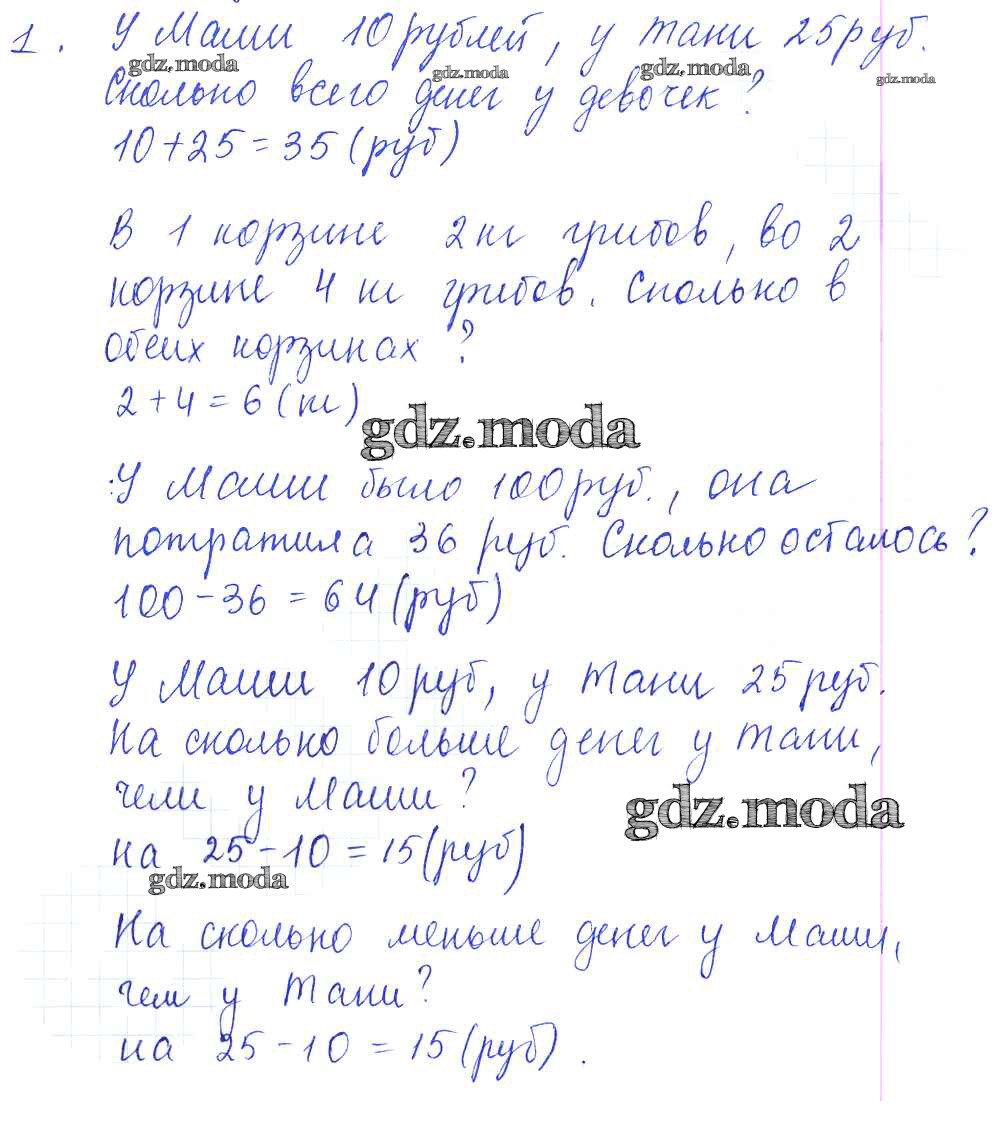 1. У Маши 10 рублей, у Тани 25 руб.
gdz.moda gdz.moda gdz.moda gdz.moda
Сколько всего денег у девочек?
10+25=35 (руб)
В 1 корзине 2 кг грибов, во 2
корзине 4 кг грибов. Сколько в
обеих корзинах?
2+4=6 (кг)
gdz.moda
У Маши было 100 руб., она
потратила 36 руб. Сколько осталось?
100-36=64 (руб)
У Маши 10 руб, у Тани 25 руб.
На сколько больше денег у Тани,
чем у Маши?
gdz.moda
на 25-10=15 (руб)
gdz.moda
На сколько меньше денег у Маши,
чем у Тани?
на 25-10=15 (руб).